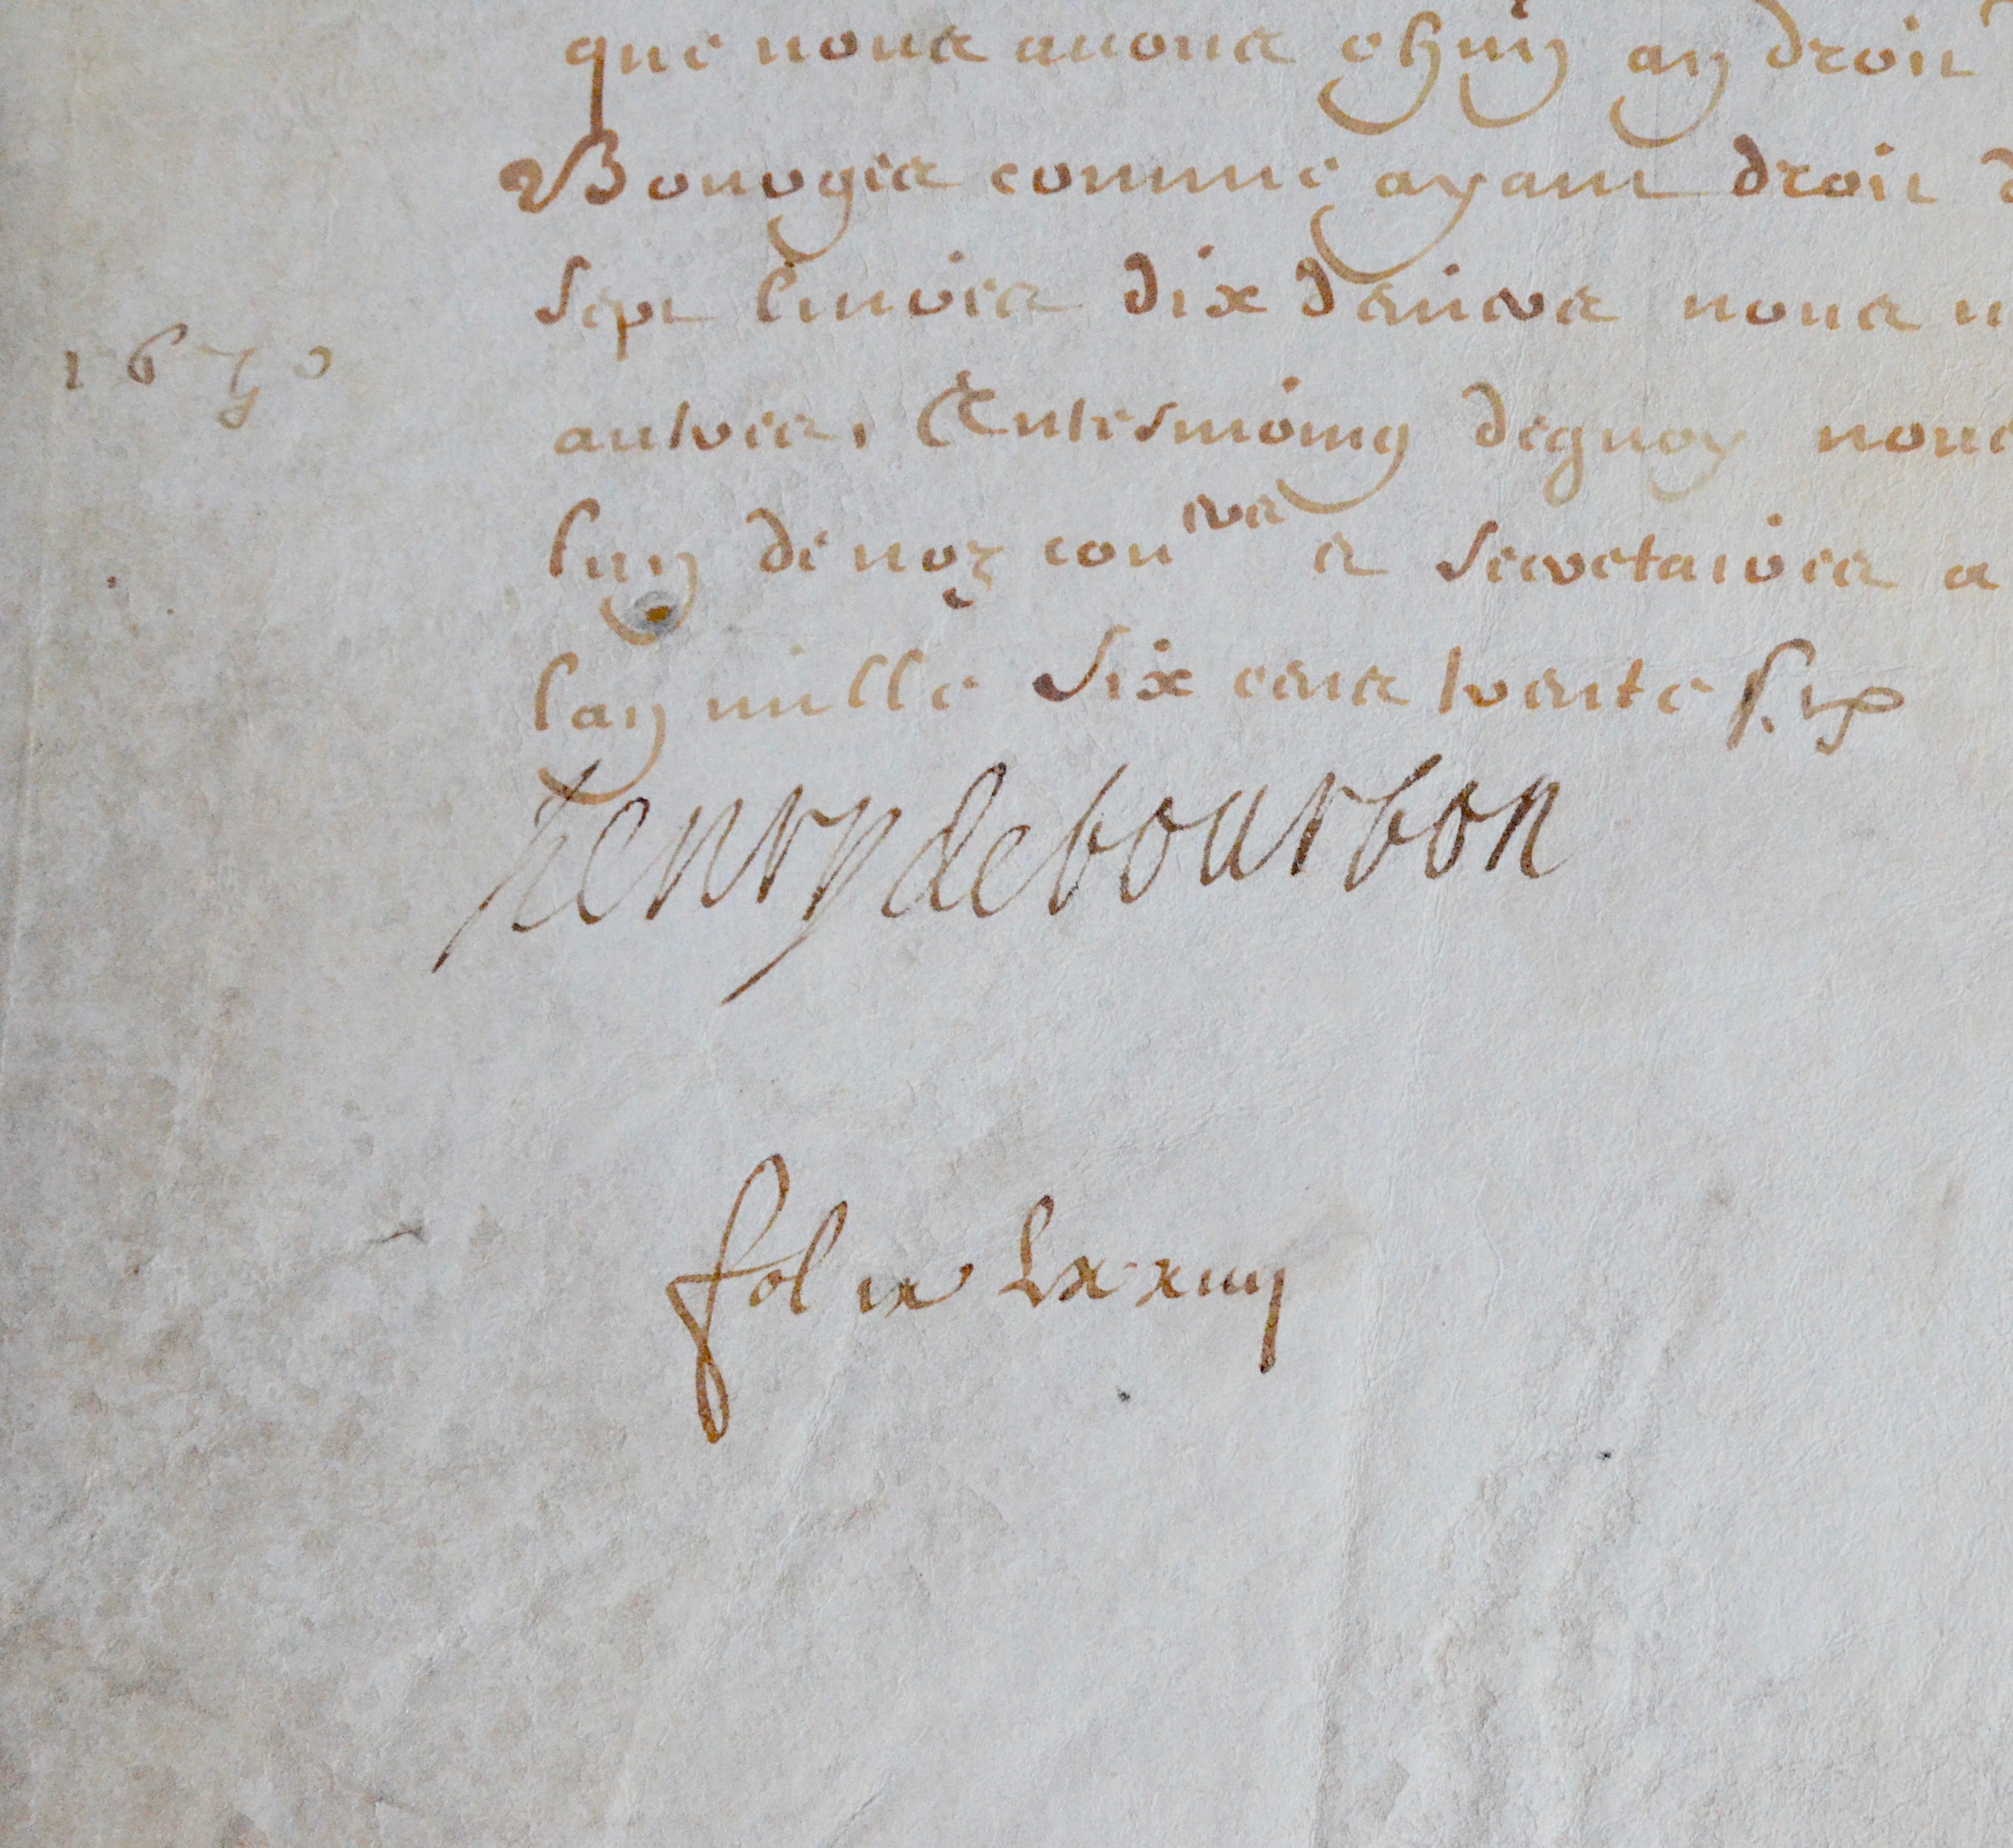 que nous avons ch un an droit
Bourges comme ayant droit d
sept livres dix deniers nous
1670
autres, Entesmoing dequoy nous
luy de noz con ers et secretaires a
lan mille six cens trente six
henrydebourbon
fol ix Lxxiiij